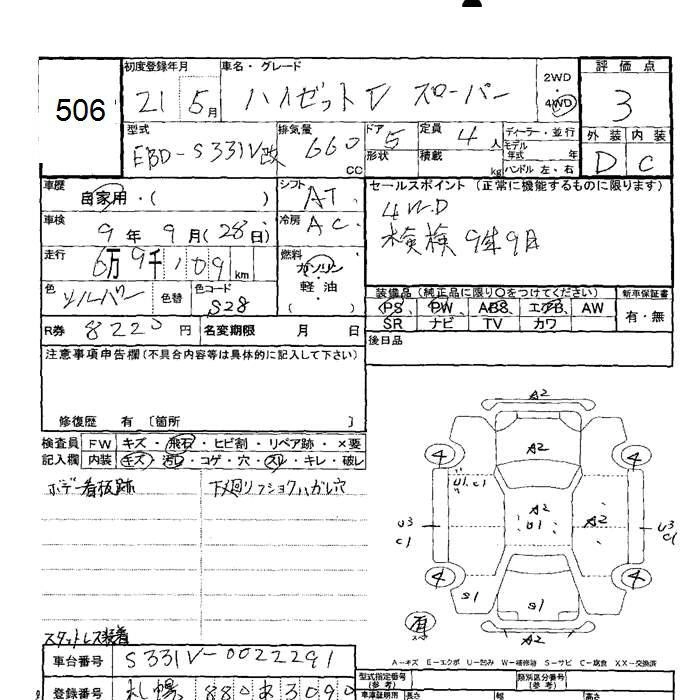 506
初度登録年月 車名・グレード 2WD 評価点
21 5月 ハイゼットV スローパー 4WD 3
型式 排気量 ドア 定員 ディーラー・並行 外装 内装
EBD-S331V改 660 CC 5 4人 モデル年式 年 D C
形状 積載 kg ハンドル 左・右
車歴 シフト セールスポイント (正常に機能するものに限ります)
自家用・( ) AT 4WD
車検 冷房
9年9月(28日) AC 車検 9年9月
走行 燃料
6万9千109km ガソリン
軽油
( )
色 シルバー 色替 色コード S28
装備品 (純正品に限り〇をつけてください) 新車保証書
PS PW ABS エアB AW 有・無
SR ナビ TV カワ
R券 8220円 名変期限 月 日
後日品
注意事項申告欄(不具合内容等は具体的に記入して下さい)
修復歴 有 〔箇所 〕
検査員 FW キズ・飛石・ヒビ割・リペア跡・×要
記入欄 内装 キズ・汚レ・コゲ・穴・スレ・キレ・破レ
ボデー看板跡 下廻り
A2
A2
4 4
U1.C1
A2
U1
A2
U3
C1
U3
C1
4 4
S1
S1
A2
スタットレス装着
A-キズ E-エクボ U-凹み W-補修跡 S-サビ C-腐食 XX-交換済
車台番号 S331V-0022291
型式指定番号(参考) 類別区分番号(参考)
登録番号 札幌 880あ3090
車検証印刷 長さ 幅 高さ